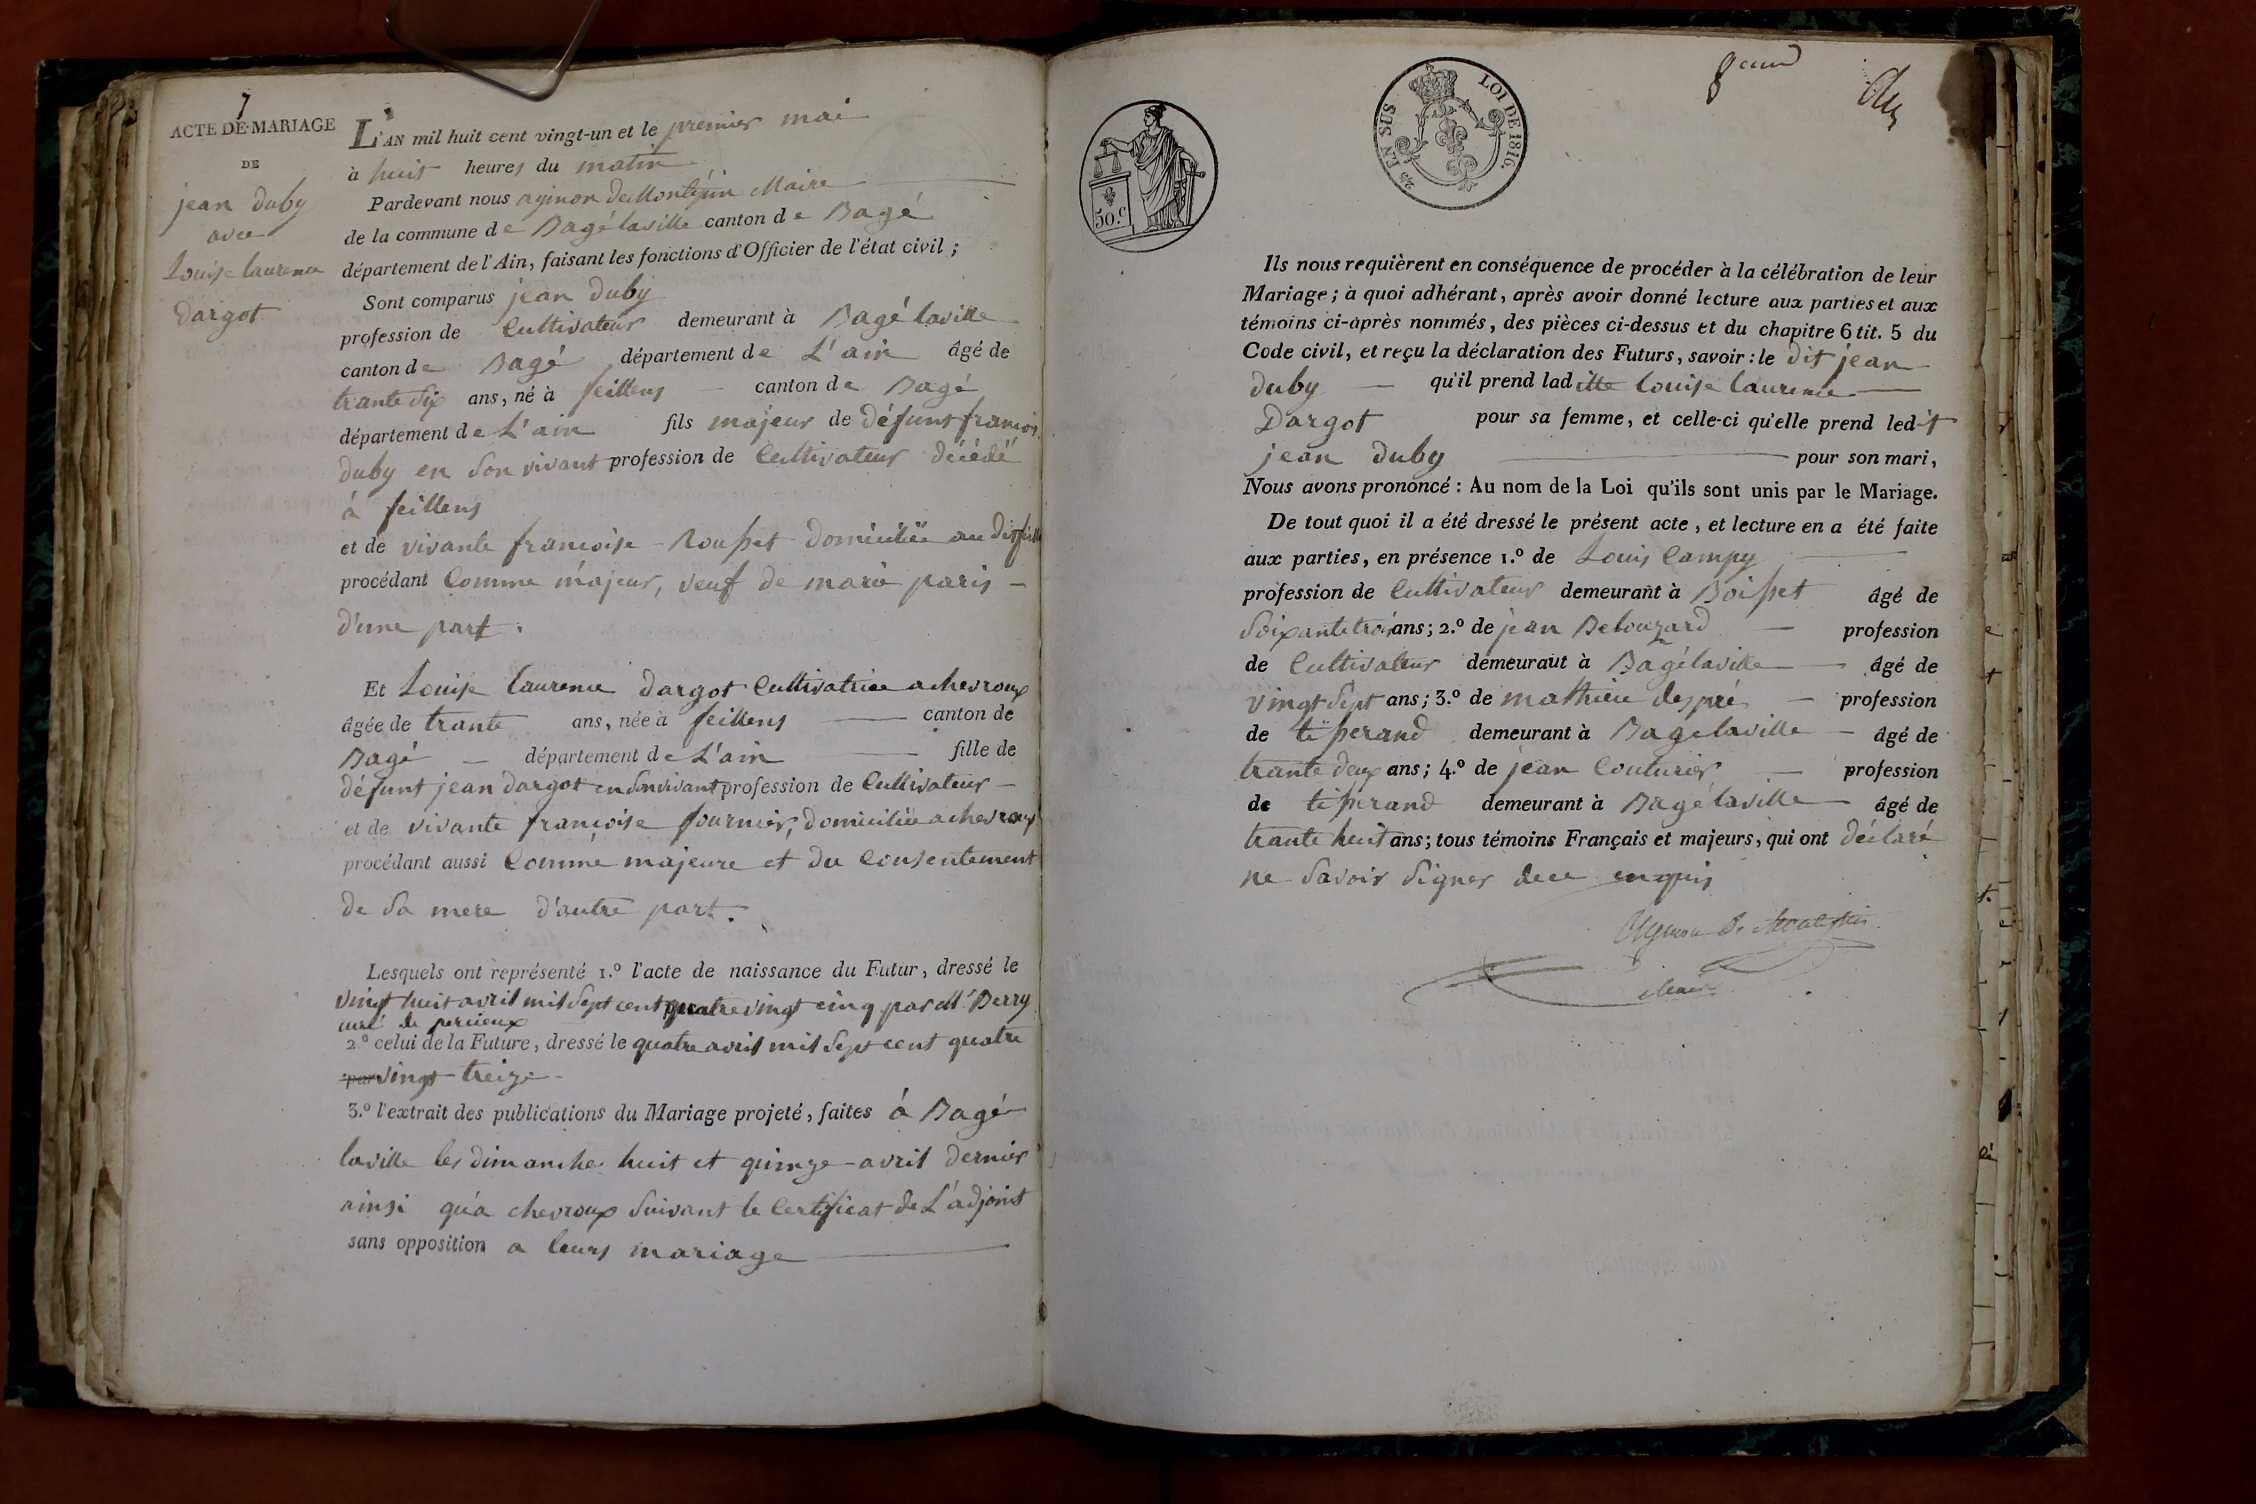 7
ACTE DE MARIAGE
DE
jean duby
avec
Louise laurence
Dargot
L'AN mil huit cent vingt-un et le premier mai
à huit heures du matin
Pardevant nous aginon de Montépin Maire
de la commune de Bagé laville canton de Bagé
département de l'Ain, faisant les fonctions d'Officier de l'état civil ;
Sont comparus jean duby
profession de Cultivateur demeurant à Bagé laville
canton de Bagé département de L'ain âgé de
trante Six ans, né à feillens canton de Bagé
département de L'ain fils majeur de défunt francois
duby en Son vivant profession de Cultivateur décédé
à feillens
et de vivante francoise Rousset domiciliée au dit
procédant Comme majeur, veuf de marie paris
d'une part.
Et Louise laurence dargot Cultivatrice a chevroux
âgée de trante ans, née à feillens canton de
Bagé département de L'ain fille de
défunt jean dargot en Son vivant profession de Cultivateur
et de vivante francoise fournier, domiciliée a chevroux
procédant aussi Comme majeure et du Consentement
de Sa mere d'autre part.
Lesquels ont représenté 1.º l'acte de naissance du Futur, dressé le
vingt huit avril mil Sept cent quatre vingt cinq par Mr Berry
curé de
2.º celui de la Future, dressé le quatre avril mil Sept cent quatre
par vingt treize
3.º l'extrait des publications du Mariage projeté, faites à Bagé
laville les dimanche huit et quinze avril dernier
ainsi qu'a chevroux Suivant le Certificat de L'adjoint
sans opposition a leurs mariage
50.C
2/5 EN SUS LOI DE 1816.
8
Ils nous requièrent en conséquence de procéder à la célébration de leur
Mariage ; à quoi adhérant, après avoir donné lecture aux parties et aux
témoins ci-après nommés, des pièces ci-dessus et du chapitre 6 tit. 5 du
Code civil, et reçu la déclaration des Futurs, savoir : le dit jean
duby qu'il prend laditte Louise laurence
Dargot pour sa femme, et celle-ci qu'elle prend ledit
jean duby pour son mari,
Nous avons prononcé : Au nom de la Loi qu'ils sont unis par le Mariage.
De tout quoi il a été dressé le présent acte, et lecture en a été faite
aux parties, en présence 1.º de Louis Campy
profession de Cultivateur demeurant à Boisset âgé de
Soixante trois ans ; 2.º de jean Belouzard profession
de Cultivateur demeurant à Bagé laville âgé de
vingt Sept ans ; 3.º de mathieu despré profession
de tisserand demeurant à Bagé laville âgé de
trante deux ans ; 4.º de jean Couturier profession
de tisserand demeurant à Bagé laville âgé de
trante huit ans ; tous témoins Français et majeurs, qui ont déclaré
ne Savoir Signer de ce enquis
Aginon de Montépin
Maire